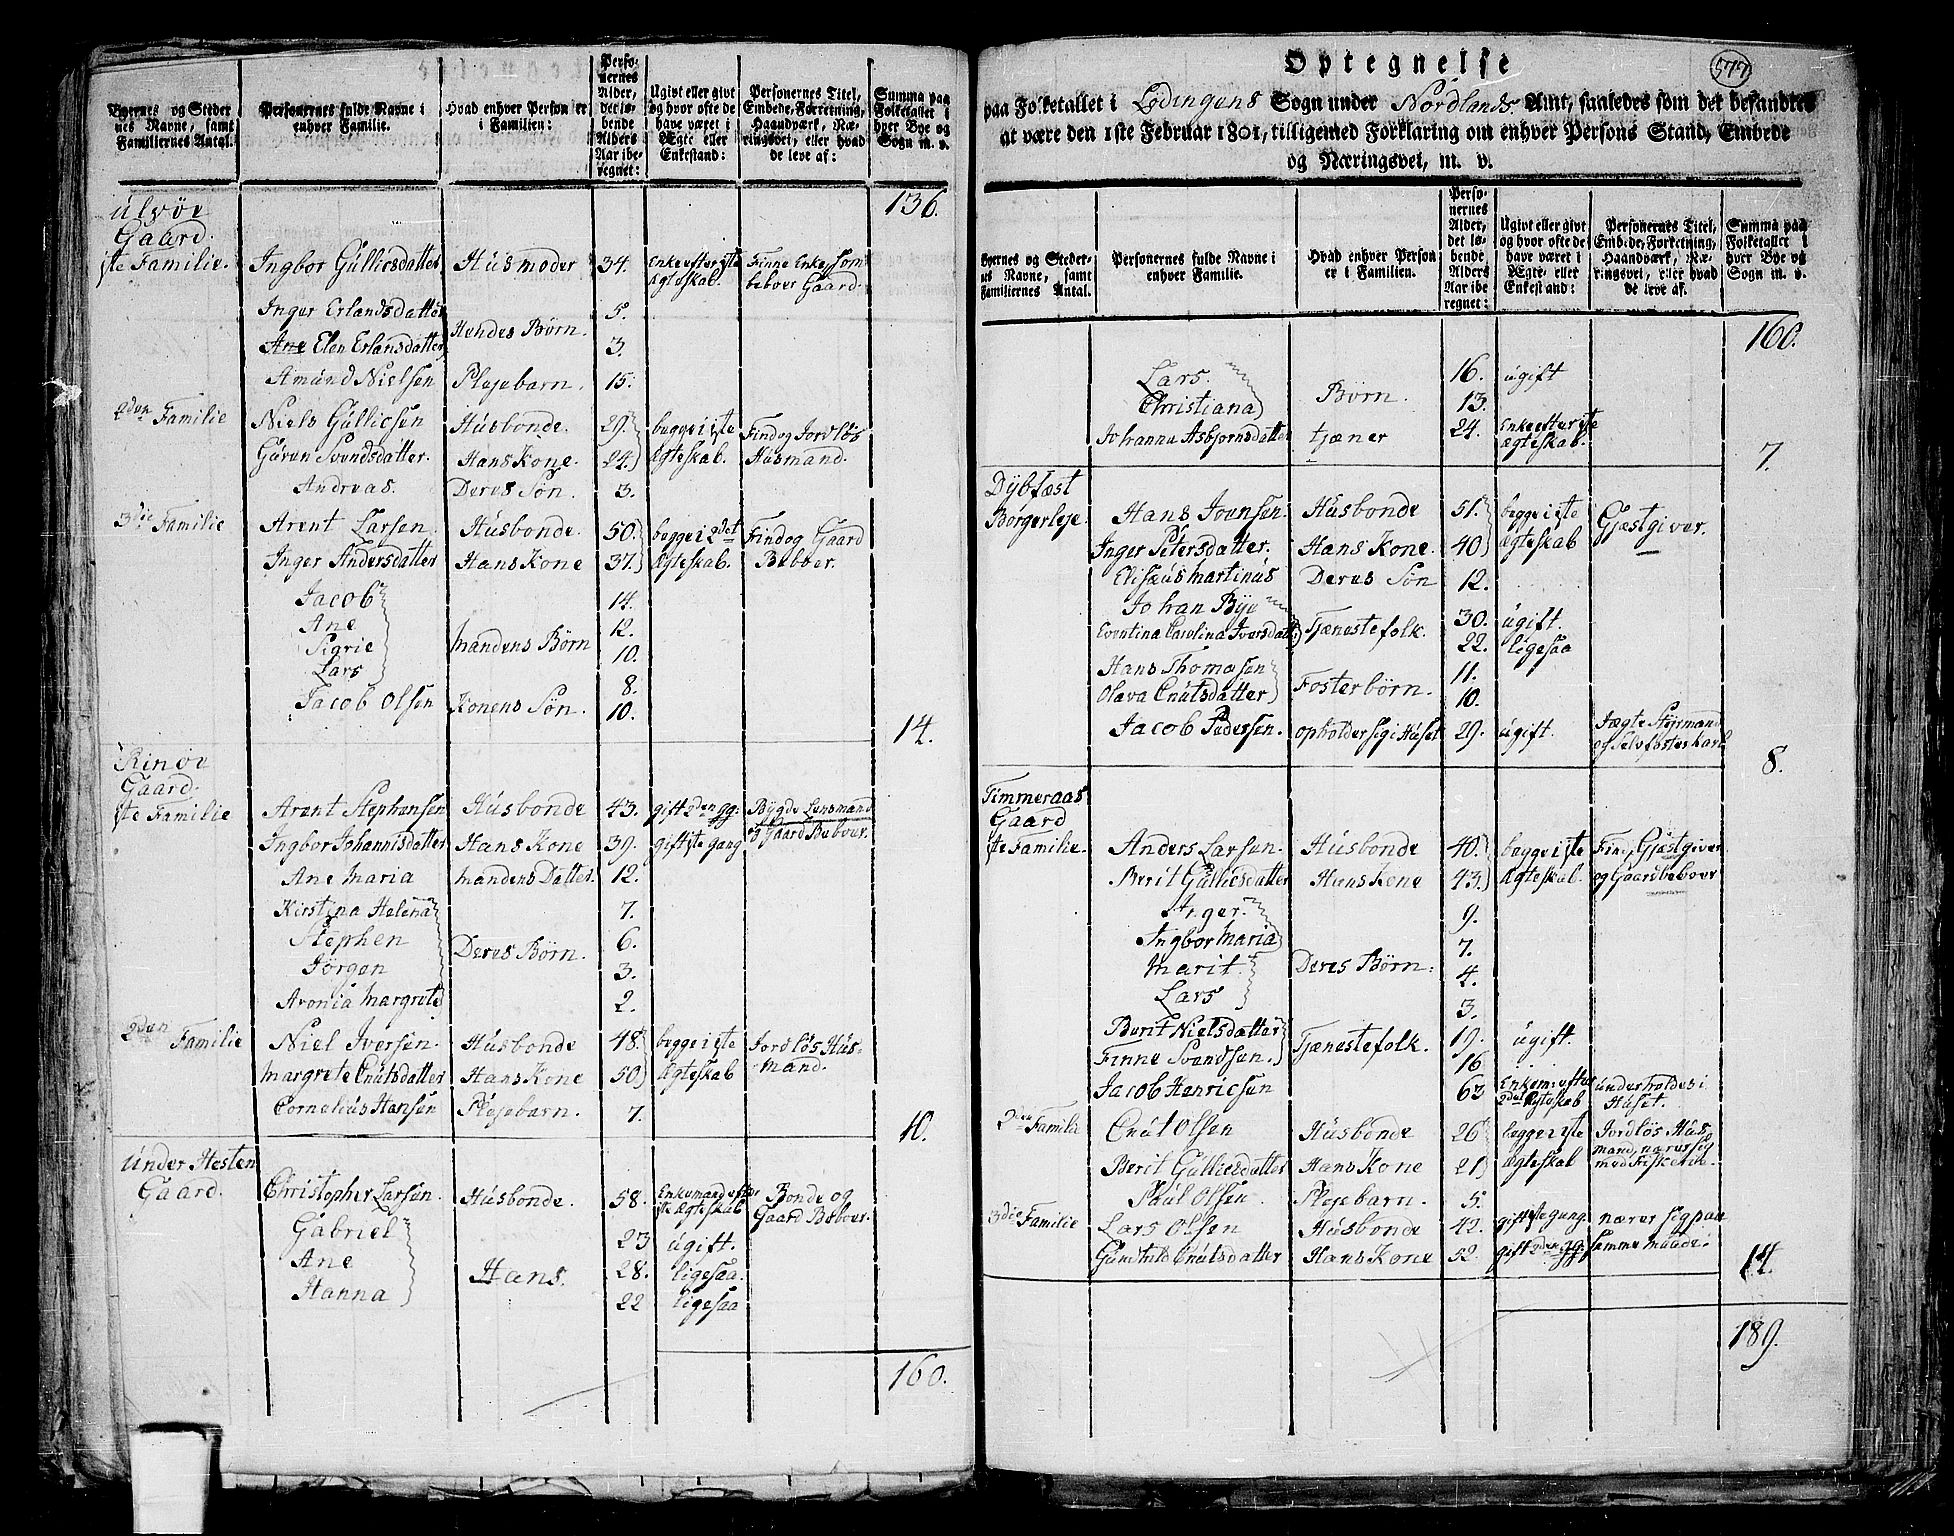 Byernes og Steder
nes Navne, samt
Familiernes Antal.
Personernes fulde Navne i
enhver Familie.
Hvad enhver Person er
i Familien:
Perso-
nernes
Alder,
det lø-
bende
Alders
Aar ibe-
regnet:
Ugivt eller givt
og hvor ofte de
have været i
Ægte eller
Enkestand:
Personernes Titel,
Embede, Forretning,
Haandværk, Næ-
ringsvei, eller hvad
de leve af:
Summa paa
Folketallet i
hver Bye og
Sogn m. v.
136.
Ulvöe
Gaard.
1te Familie. Ingbor Gullicsdatter Husmoder 34. Enke efter 1ste Finne Enke, som
Ægteskab. beboer Gaard.
Inger Erlandsdatter 5.
Hendes Børn
Ane Elen Erlansdatter 3.
Amund Nielsen Plejebarn. 15.
2den Familie Niels Gullicsen Husbonde. 29. begge i 1ste Find og Jordløs
Guren Svendsdatter. Hans Kone. 24. Ægteskab. Husmand.
Andreas. Deres Søn. 3.
3die Familie Arent Larsen Husbonde. 50. begge i 2det Find og Gaard
Inger Andersdatter Hans Kone 37. Ægteskab. Beboer.
Jacob 14.
Ane 12.
Mandens Børn
Sigrie 10.
Lars 8.
Jacob Olsen Konens Søn. 10.
14.
Rinöe
Gaard.
1te Familie Arent Stephensen Husbonde 43. gift 2den gg. Bygde Lensmand
og Gaard Beboer.
Ingbor Johannisdatter Hans Kone 39. gift 1ste gang
Ane Maria Mandens Datter. 12.
Kirstina Helena 7.
Stephen 6.
Deres Børn
Jörgen 3.
Avonia Margrete 2.
2den Familie Niel Iversen. Husbonde 48. begge i 1ste Jordløs Hus-
Margrete Cnutsdatter Hans Kone 50. Ægteskab mand.
Cornelius Hansen Plejebarn. 7.
10.
Under Hesten
Gaard. Christopher Larsen. Husbonde. 58. Enkemand efter Bonde og
1te Ægteskab Gaard Beboer.
Gabriel 23 ugift.
Ane Hans. 28. ligesaa.
Hanna 22 ligesaa
160.
Optegnelse
577
paa Folketallet i Lödingens Sogn under Nordlands Amt, saaledes som det befandtes
at være den 1ste Februar 1801, tilligemed Forklaring om enhver Persons Stand, Embede
og Næringsvei, m. v.
Byernes og Steder-
nes Navne, samt
Familiernes Antal.
Personernes fulde Navne i
enhver Familie.
Hvad enhver Person
er i Familien.
Perso-
nernes
Alder,
det lø-
bende
Alders
Aar ibe-
regnet:
Ugivt eller givt
og hvor ofte de
have været i
Ægte- eller
Enkestand:
Personernes Titel,
Embede, Forretning,
Haandværk, Næ-
ringsvei, eller hvad
de leve af.
Summa paa
Folketallet i
hver Bye og
Sogn m. v.
160.
Lars. 16. ugift
Børn.
Christiana 13.
Johanna Asbjørnsdatter tjæner 24. Enke efter 1ste
Ægteskab.
7.
Dybfæst
Borgerleje. Hans Jvensen. Husbonde 51. begge i 1ste Gjæstgiver.
Inger Petersdatter. Hans Kone. 40 Ægteskab
Elisæus Martinus Deres Søn 12.
Johan Bye 30. ugift.
Tjænestefolk.
Eventina Carolina Iversdatt: 22. ligesaa
Hans Thomæsen 11.
Fosterbørn.
Olava Cnutsdatter 10.
Jacob Pedersen. opholder sig i Huset 29. ugift. Jægte Styrmand
og Selvfosterkarl
8.
Timmeraas
Gaard
1te Familie. Anders Larsen. Husbonde 40. begge i 1ste Find, Gjæstgiver
Berit Gullicsdatter Hans Kone 43. Ægteskab. og Gaardbeboer
Inger. 9.
Ingbor Maria 7.
Deres Børn.
Marit. 4.
Lars 3.
Berit Nielsdatter 19. ugift.
Tjænestefolk.
Finne Svendsen. 16
Jacob Henricsen 63 Enkem: efter underholdes i
2det Ægteskab Huset.
2den Familie Cnut Olsen Husbonde 26 begge i 1ste Jordløs Hus
mand, nærer sig
Berit Gullicsdatter Hans Kone 21 Ægteskab med Fiskerie.
Paul Olsen Plejebarn. 5.
3die Familie Lars Olsen Husbonde 42. gift 1ste gang. nærer sig paa
Gunhild Cnutsdatter Hans Kone 52. gift 2den gg. samme maade.
14.
189.
413